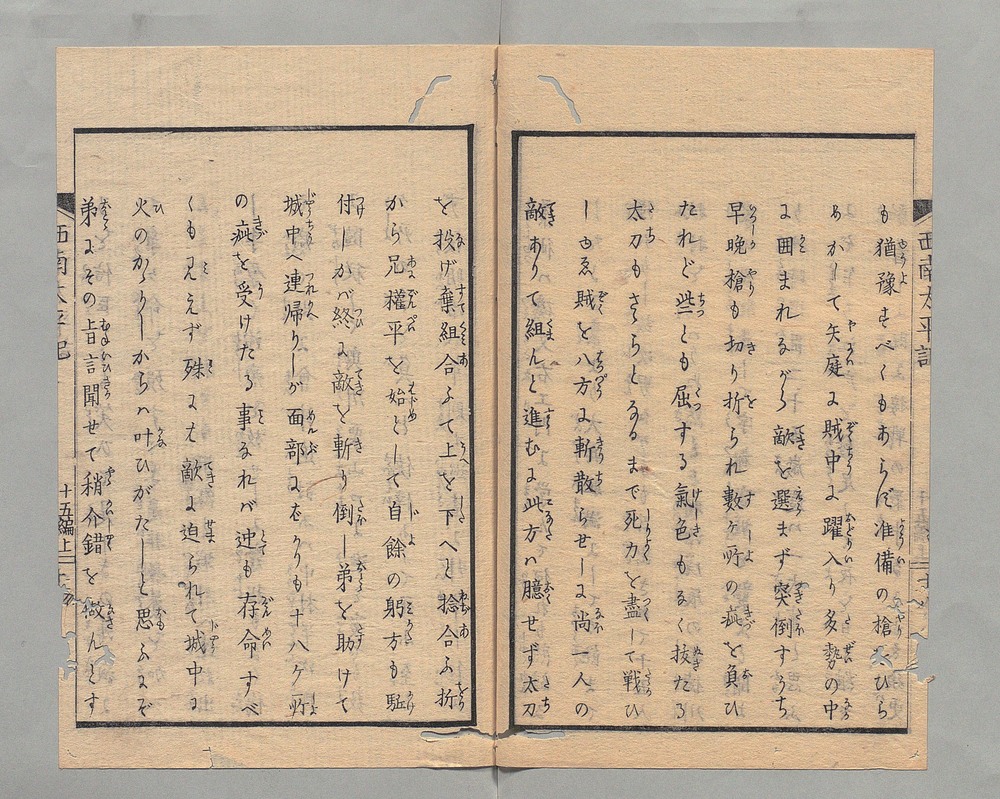 も猶豫すべくもあらず准備の槍ひら
めかして矢庭に賊中に躍入り多勢の中
に囲まれながら敵を選まず突倒すうち
早晩槍も切り折られ數ヶ所の疵を負ひ
たれど些とも屈する氣色もなく抜たる
太刀もさゝらとなるまで死力を盡して戦ひ
しゆゑ賊を八方に斬散らせしに尚一人の
敵ありて組んと進むに此方ハ臆せず太刀
を投げ棄組合ふて上を下へと捻合ふ折
から兄權平を始として自餘の躬方も駈
付しかバ終に敵を斬り倒し弟を助けて
城中へ連帰りしが面部はかりも十八ケ所
の疵を受けたる事なれバ迚も存命すべ
くも見えず殊には敵に迫られて城中に
火のかゝりしからハ叶ひがたしと思ふにぞ
弟にその旨言聞せて稍介錯を做んとす
西南太平記
十五編上